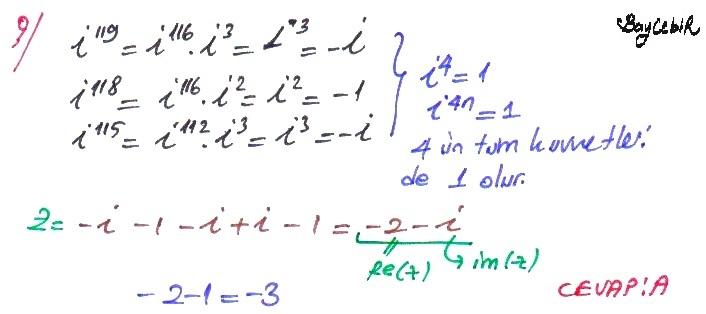 BayCebir
9) i^119 = i^116 . i^3 = i^3 = -i
i^118 = i^116 . i^2 = i^2 = -1
i^115 = i^112 . i^3 = i^3 = -i
i^4 = 1
i^4n = 1
4 ün tüm kuvvetleri
de 1 olur.
z = -i -1 -i + i -1 = -2 - i
Re(z) im(z)
-2-1=-3
CEVAP:A